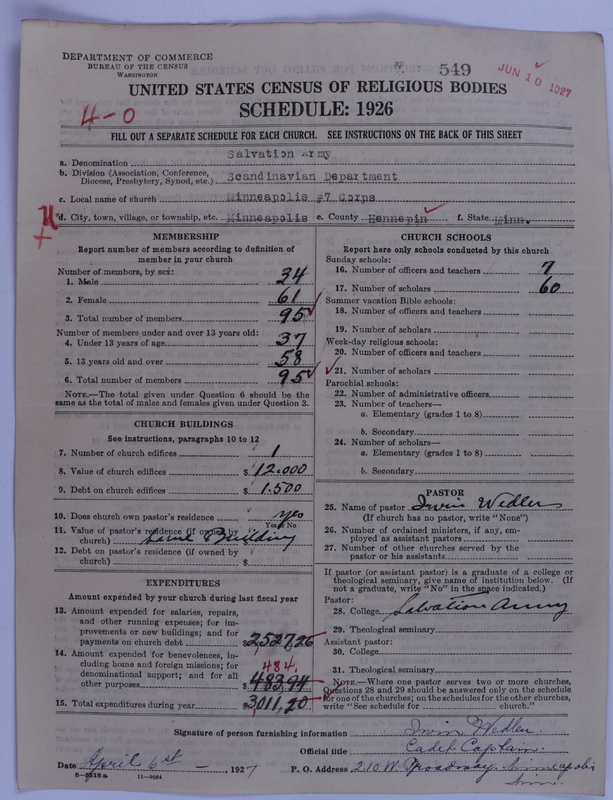 DEPARTMENT OF COMMERCE
BUREAU OF THE CENSUS
WASHINGTON
549
JUN 10 1927
UNITED STATES CENSUS OF RELIGIOUS BODIES
SCHEDULE: 1926
4-0
FILL OUT A SEPARATE SCHEDULE FOR EACH CHURCH. SEE INSTRUCTIONS ON THE BACK OF THIS SHEET
a. Denomination Salvation Army
b. Division (Association, Conference, Diocese, Presbytery, Synod, etc.) Scandinavian Department
c. Local name of church Minneapolis #7 Corps
d. City, town, village, or township, etc. Minneapolis e. County Hennepin f. State Minn.
MEMBERSHIP
Report number of members according to definition of member in your church
Number of members, by sex:
1. Male 34
2. Female 61
3. Total number of members 95
Number of members under and over 13 years old:
4. Under 13 years of age 37
5. 13 years old and over 58
6. Total number of members 95
NOTE.—The total given under Question 6 should be the same as the total of males and females given under Question 3.
CHURCH BUILDINGS
See instructions, paragraphs 10 to 12
7. Number of church edifices 1
8. Value of church edifices $ 12.000
9. Debt on church edifices $ 1.500
10. Does church own pastor's residence yes
Yes or No
11. Value of pastor's residence (if owned by church) Same Building
12. Debt on pastor's residence (if owned by church) $
EXPENDITURES
Amount expended by your church during last fiscal year
13. Amount expended for salaries, repairs, and other running expenses; for improvements or new buildings; and for payments on church debt $ 2527.26
14. Amount expended for benevolences, including home and foreign missions; for denominational support; and for all other purposes $ 483.94
484
15. Total expenditures during year $ 3011,20
CHURCH SCHOOLS
Report here only schools conducted by this church
Sunday schools:
16. Number of officers and teachers 7
17. Number of scholars 60
Summer vacation Bible schools:
18. Number of officers and teachers
19. Number of scholars
Week-day religious schools:
20. Number of officers and teachers
21. Number of scholars
Parochial schools:
22. Number of administrative officers
23. Number of teachers—
a. Elementary (grades 1 to 8)
b. Secondary
24. Number of scholars—
a. Elementary (grades 1 to 8)
b. Secondary
PASTOR
25. Name of pastor Irwin Wedler
(If church has no pastor, write "None")
26. Number of ordained ministers, if any, employed as assistant pastors
27. Number of other churches served by the pastor or his assistants
If pastor (or assistant pastor) is a graduate of a college or theological seminary, give name of institution below. (If not a graduate, write "No" in the space indicated.)
Pastor:
28. College Salvation Army
29. Theological seminary
Assistant pastor:
30. College
31. Theological seminary
NOTE.—Where one pastor serves two or more churches, Questions 28 and 29 should be answered only on the schedule for one of the churches; on the schedules for the other churches, write "See schedule for church."
Signature of person furnishing information Irwin Wedler
Official title Cadet Captain.
Date April 6st, 1927 P. O. Address 210 W. Broadway. Minneapolis Minn.
8-5518a 11-9064